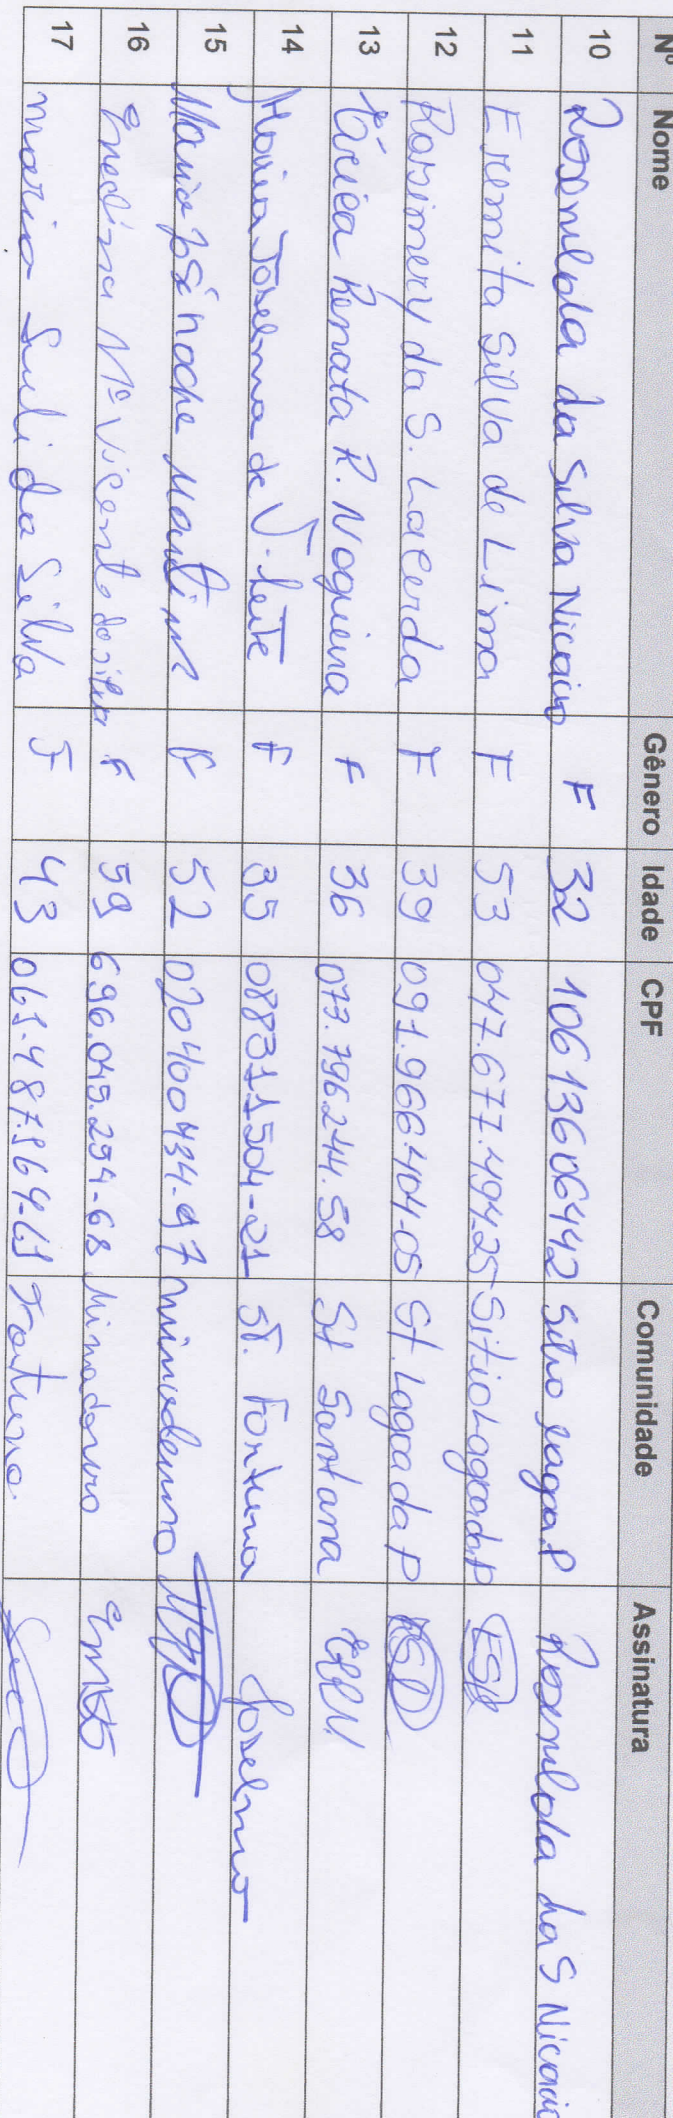 Nº Nome Gênero Idade CPF Comunidade Assinatura
10 Rosenilda da Silva Nicacio F 32 10613606442 Sitio Lagoa.P Rosenilda da S Nicacio
11 Eremita Silva de Lima F 53 047.677.494-25 Sitio Lagoada.P ESL
12 Rosimery da S. Lacerda F 39 091.966.404-05 St. Lagoa da P RSL
13 Érica Renata R. Nogueira F 36 073.796.244.58 St Santana ERRN
14 Maria Joselma de V. leite F 35 088311504-21 St. Fortuna Joselma
15 Maria José noche Martins F 52 020400434-97
16 Enedina Mª Vicente da silva F 59 696.045.254-68 Minadouro
17 maria Sueli da Silva F 43 Fortuna.